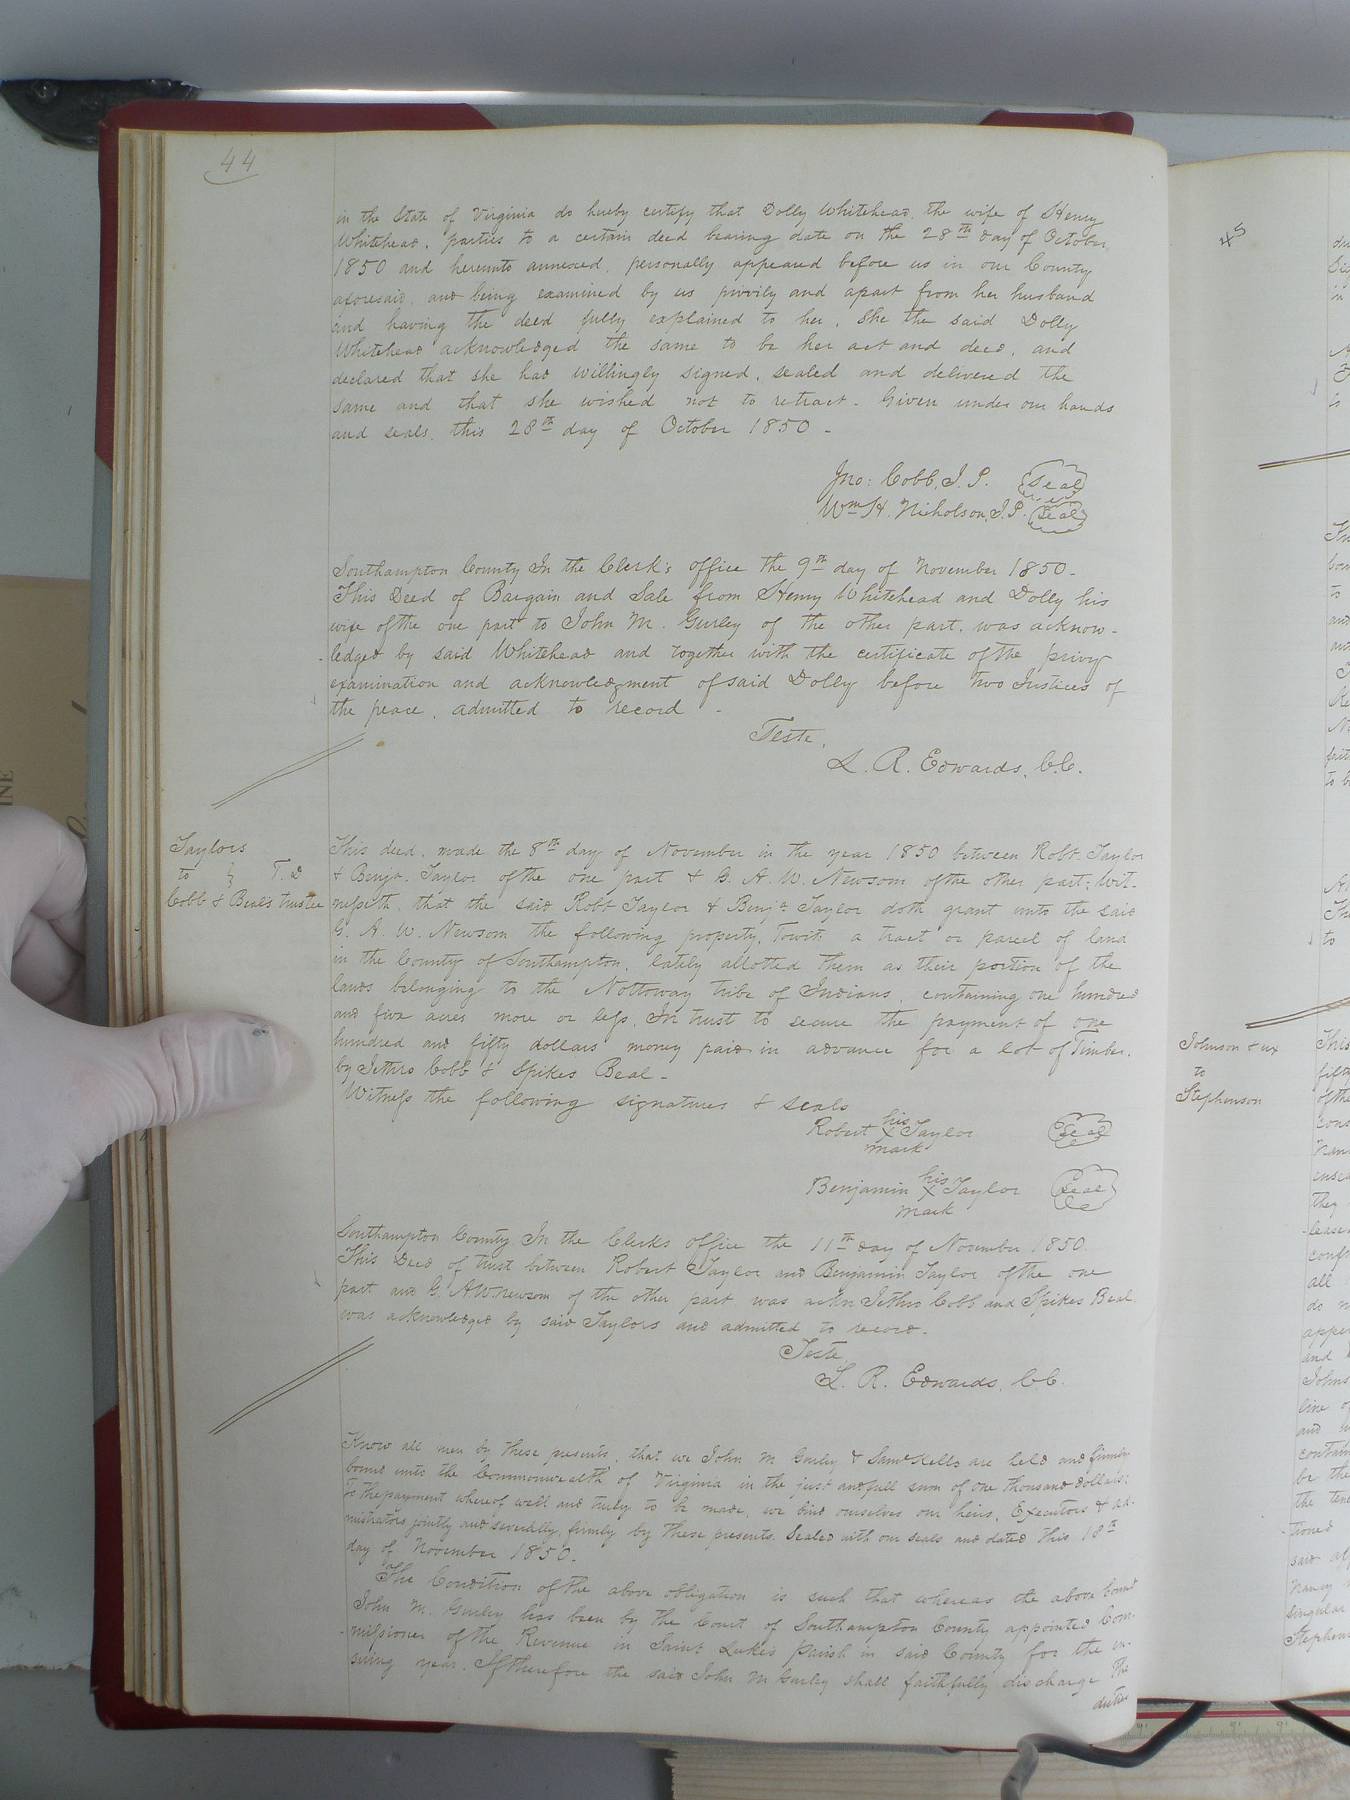 44
in the State of Virginia do hereby certify that Dolly Whitehead, the wife of Henry
Whitehead, parties to a certain deed bearing date on the 28th day of October
1850 and hereunto annexed, personally appeared before us in our County
aforesaid, and being examined by us privily and apart from her husband
and having the deed fully explained to her, she the said Dolly
Whitehead acknowledged the same to be her act and deed, and
declared that she had willingly signed, sealed and delivered the
same and that she wished not to retract. Given under our hands
and seals, this 28th day of October 1850 -
Jno: Cobb, J.P. Seal
Wm H. Nicholson, J.P. Seal
Southampton County In the Clerk's office the 9th day of November 1850 -
This Deed of Bargain and Sale from Henry Whitehead and Dolly his
wife of the one part to John M. Gurley of the other part, was acknow-
ledged by said Whitehead and together with the certificate of the privy
examination and acknowledgment of said Dolly before two Justices of
the peace, admitted to record -
Teste,
L. R. Edwards, C.C.
Taylors
to } T. D
Cobb & Beal's trustee
This deed, made the 8th day of November in the year 1850 between Robt. Taylor
& Benjn. Taylor of the one part & G. A. W. Newsom of the other part; Wit-
nesseth, that the said Robt Taylor & Benjn Taylor doth grant unto the said
G. A. W. Newsom the following property, Towit: a tract or parcel of land
in the County of Southampton, lately allotted them as their portion of the
lands belonging to the Nottoway tribe of Indians, containing one hundred
and five acres more or less, In trust to secure the payment of one
hundred and fifty dollars money paid in advance for a lot of Timber.
by Jethro Cobb & Spikes Beal -
Witness the following signatures & seals
Robert his X mark Taylor Seal
Benjamin his X mark Taylor Seal
Southampton County. In the Clerks office the 11th day of November 1850.
This Deed of trust between Robert Taylor and Benjamin Taylor of the one
part and G. A W Newsom of the other part was ackn Jethro Cobb and Spikes Beal
was acknowledged by said Taylors and admitted to record.
Teste
L. R. Edwards, C.C.
Know all men by these presents, that we John M Gurley & Saml Kello are held and firmly
bound unto the Commonwealth of Virginia in the just and full sum of one thousand dollars:
To the payment whereof well and truly to be made, we bind ourselves our heirs, Executors & ad-
ministrators jointly and severally, firmly by these presents. Sealed with our seals and dated this 18th
day of November 1850 -
The Condition of the above obligation is such that whereas the above bound
John M. Gurley has been by the Court of Southampton County appointed Com-
missioner of the Revenue in Saint Luke's Parish in said County for the en-
suing year. If therefore the said John M Gurley shall faithfully discharge the
duties
45
Johnson & ux
to
Stephenson